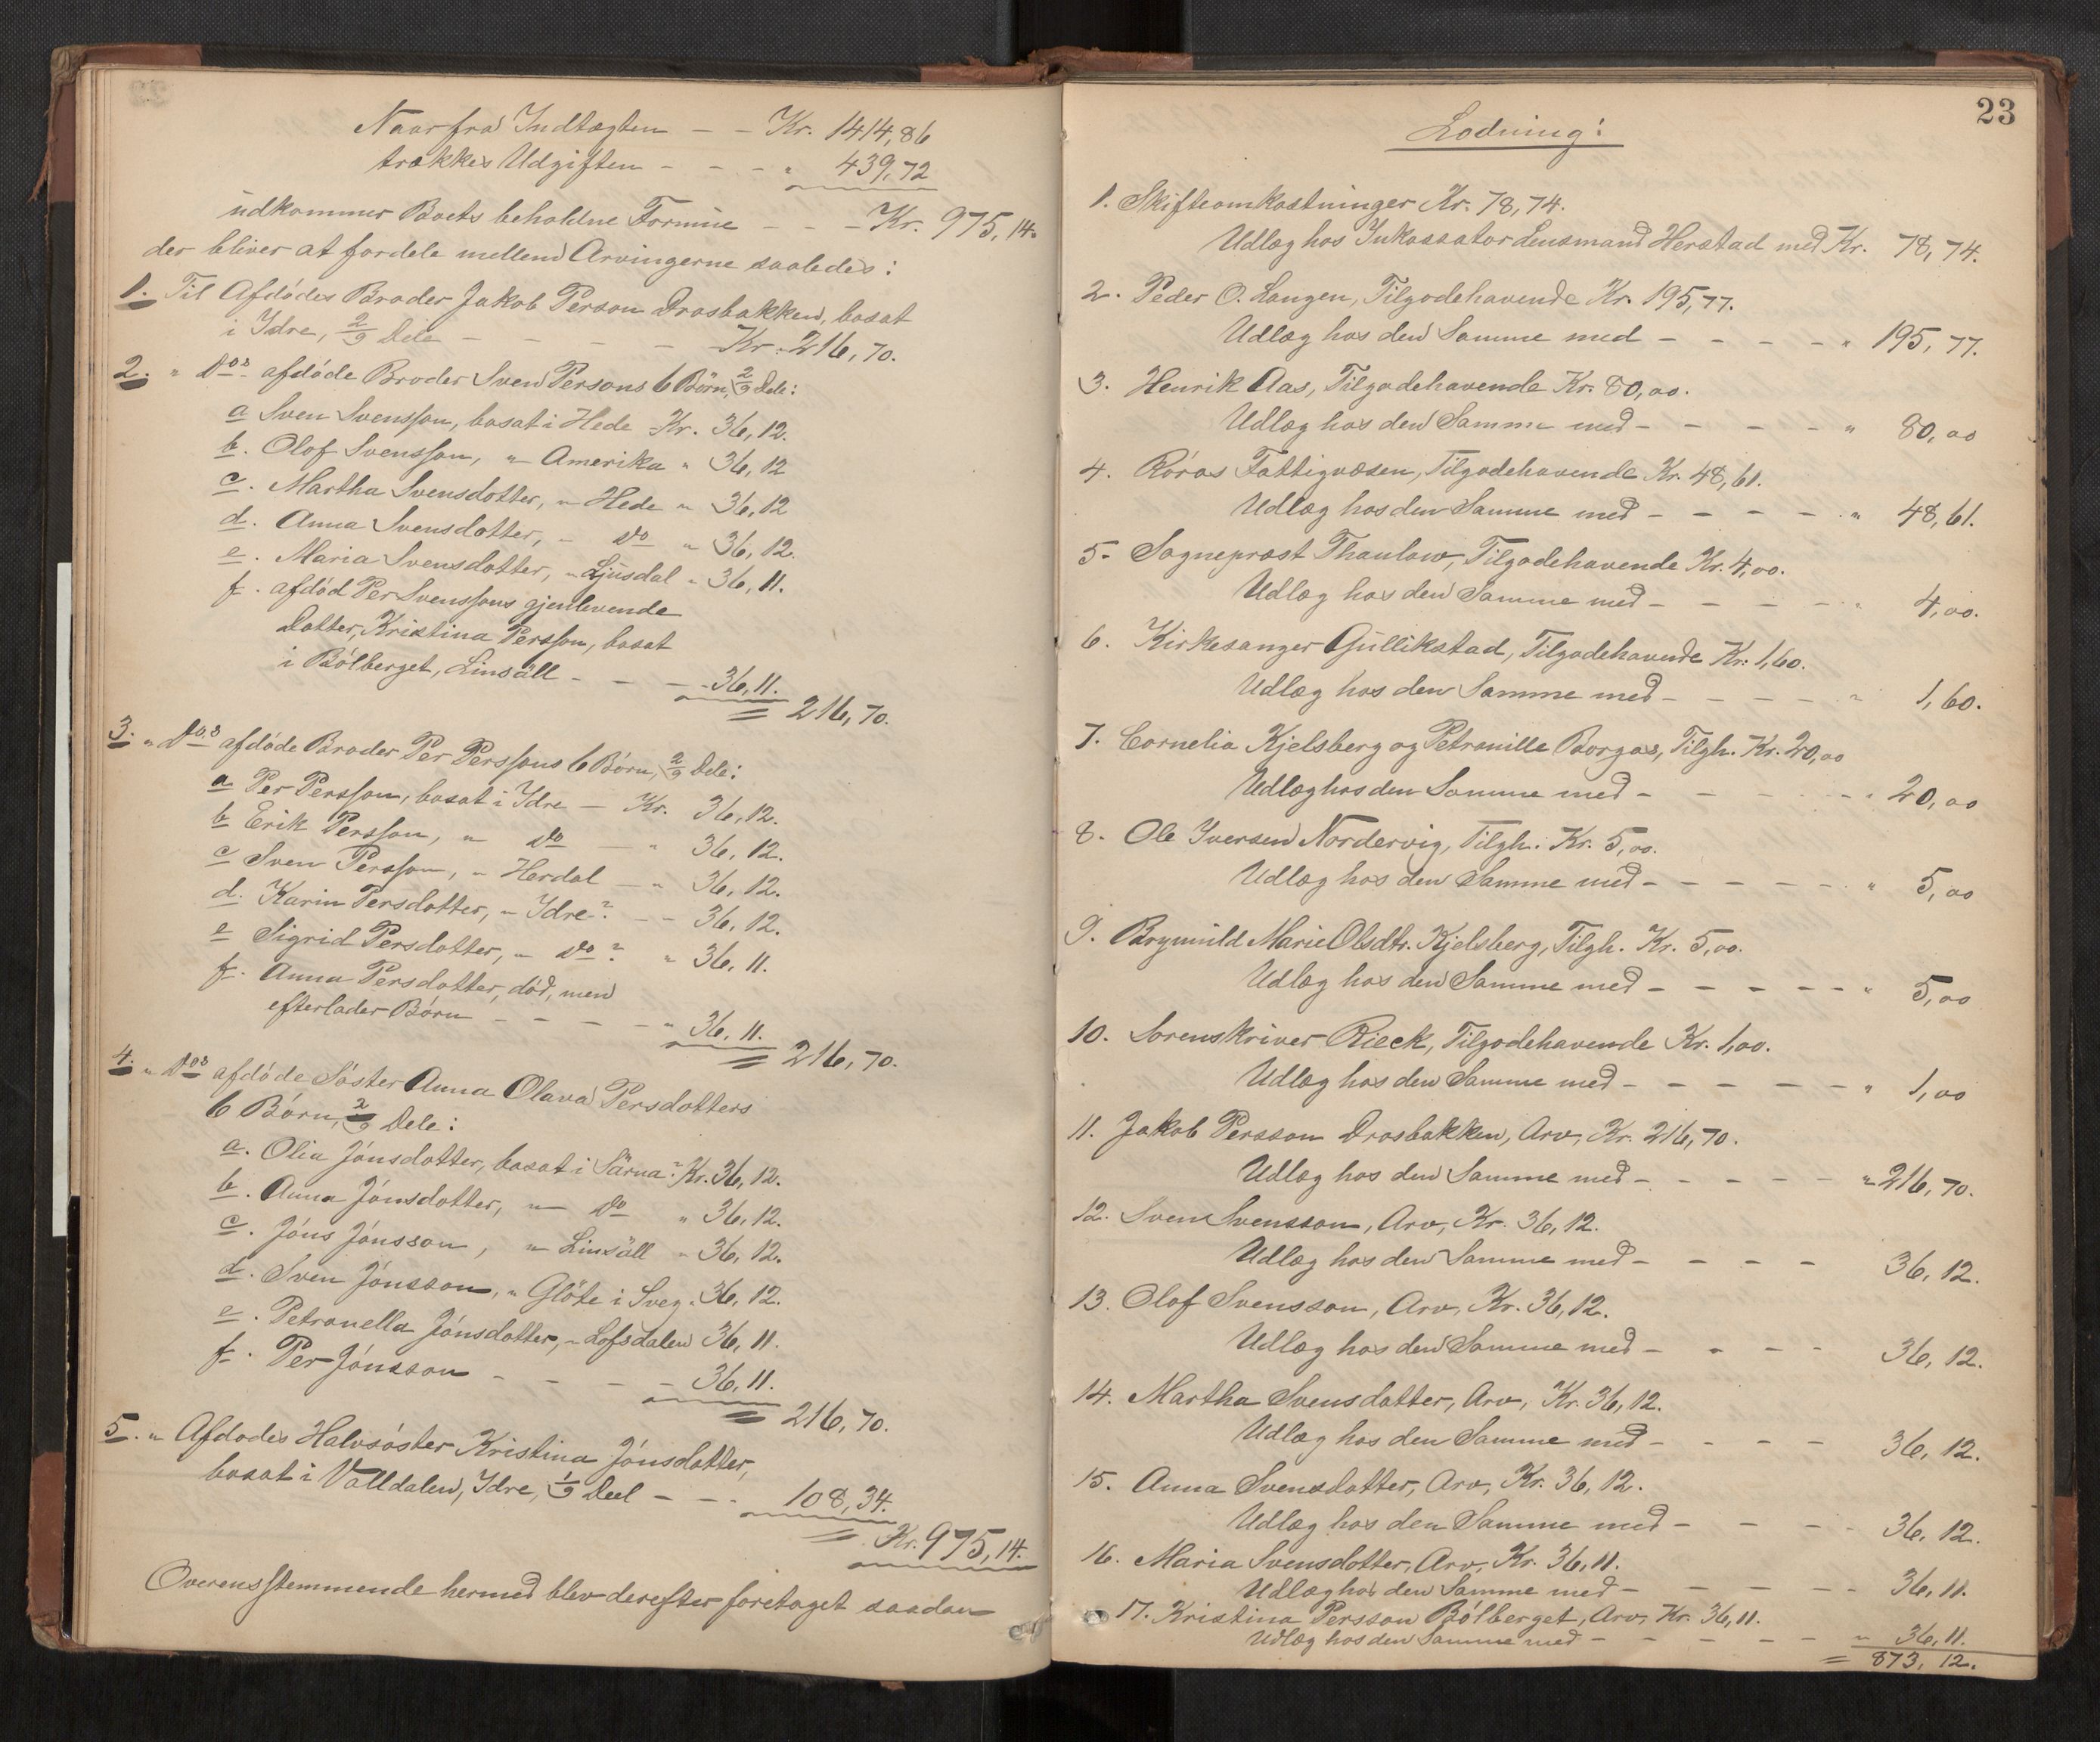 Naar fra Indtægten – – Kr. 1414,86
trækkes Udgiften – – – " 439,72
udkommer Boets beholdne Formue – – – Kr. 975,14.
der bliver at fordele mellem Arvingerne saaledes:
1. Til Afdødes Broder Jakob Person Drosbakken, bosat
i Idre, 2/9 Dele – – – – – Kr. 216,70.
2. " Dos afdøde Broder Sven Persons 6 Børn, 2/9 Dele:
a Sven Svensson, bosat i Hede Kr. 36,12.
b. Olof Svensson, " Amerika " 36,12
c. Martha Svensdotter, " Hede " 36,12
d. Anna Svensdotter, – Do " 36,12.
e. Maria Svensdotter, " Ljusdal " 36,11.
f. afdød Per Svenssons gjenlevende
Datter, Kristina Persson, bosat
i Bölberget, Linsäll – – – – 36,11.
= 216,70.
3. " Dos afdøde Broder Per Perssons 6 Børn, 2/9 Dele:
a Per Persson, bosat i Idre – Kr. 36,12.
b Erik Persson, " Do – " 36,12.
c Sven Persson, " Herdal – " 36,12.
d. Karin Persdotter, " Idre? – – 36,12.
e Sigrid Persdotter, " Do? " 36,11.
f. Anna Persdotter, død, men
efterlader Børn – – – – " 36,11.
= 216,70.
4. " Dos afdøde Søster Anna Olava Persdotters
6 Børn, 2/9 Dele:
a. Olia Jönsdotter, bosat i Särna? Kr. 36,12.
b. Anna Jönsdotter, " Do " 36,12.
c. Jöns Jönsson, " Linsäll " 36,12.
d. Sven Jönsson, " Glöte i Sveg " 36,12.
e. Petronella Jönsdotter, " Lofsdalen 36,11.
f. Per Jönsson – – – – 36,11.
= 216,70.
5. " Afdødes Halvsøster Kristina Jönsdotter,
bosat i Valldalen, Idre, 1/9 Deel – – – 108,34.
= Kr. 975,14.
Overensstemmende hermed blev derefter foretaget saadan
23
Lodning:
1. Skifteomkostninger Kr. 78,74.
Udlæg hos Inkassator Lensmand Herstad med Kr. 78,74.
2. Peder O. Langen, Tilgodehavende Kr. 195,77.
Udlæg hos den Samme med – – – – " 195,77.
3. Henrik Aas, Tilgodehavende Kr. 80,00.
Udlæg hos den Samme med – – – – " 80,00
4. Röros Fattigvæsen, Tilgodehavende Kr. 48,61.
Udlæg hos den Samme med – – – – " 48,61.
5. Sogneprest Thaulow, Tilgodehavende Kr. 4,00.
Udlæg hos den Samme med – – – – " 4,00.
6. Kirkesanger Gullikstad, Tilgodehavende Kr. 1,60.
Udlæg hos den Samme med – – – – – " 1,60.
7. Cornelia Kjelsberg og Petronille Borgos, Tilgh. Kr. 20,00
Udlæg hos den Samme med – – – – – " 20,00
8. Ole Iversen Nordervig, Tilgh. Kr. 5,00.
Udlæg hos den Samme med – – – – – " 5,00
9. Brynnild Marie Olsdtr. Kjelsberg, Tilgh. Kr. 5,00.
Udlæg hos den Samme med – – – – – " 5,00
10. Sorenskriver Rieck, Tilgodehavende Kr. 1,00.
Udlæg hos den Samme med – – – – – " 1,00
11. Jakob Persson Drosbakken, Arv, Kr. 216,70.
Udlæg hos den Samme med – – – – – " 216,70.
12. Sven Svensson, Arv, Kr. 36,12.
Udlæg hos den Samme med – – – – 36,12.
13. Olof Svensson, Arv, Kr. 36,12.
Udlæg hos den Samme med – – – – 36,12.
14. Martha Svensdotter, Arv, Kr. 36,12.
Udlæg hos den Samme med – – – – 36,12.
15. Anna Svensdotter, Arv, Kr. 36,12.
Udlæg hos den Samme med – – – – 36,12.
16. Maria Svensdotter, Arv, Kr. 36,11.
Udlæg hos den Samme med – – – – – 36,11.
17. Kristina Persson Bölberget, Arv, Kr. 36,11.
Udlæg hos den Samme med – – – – – " 36,11.
= 873,12.